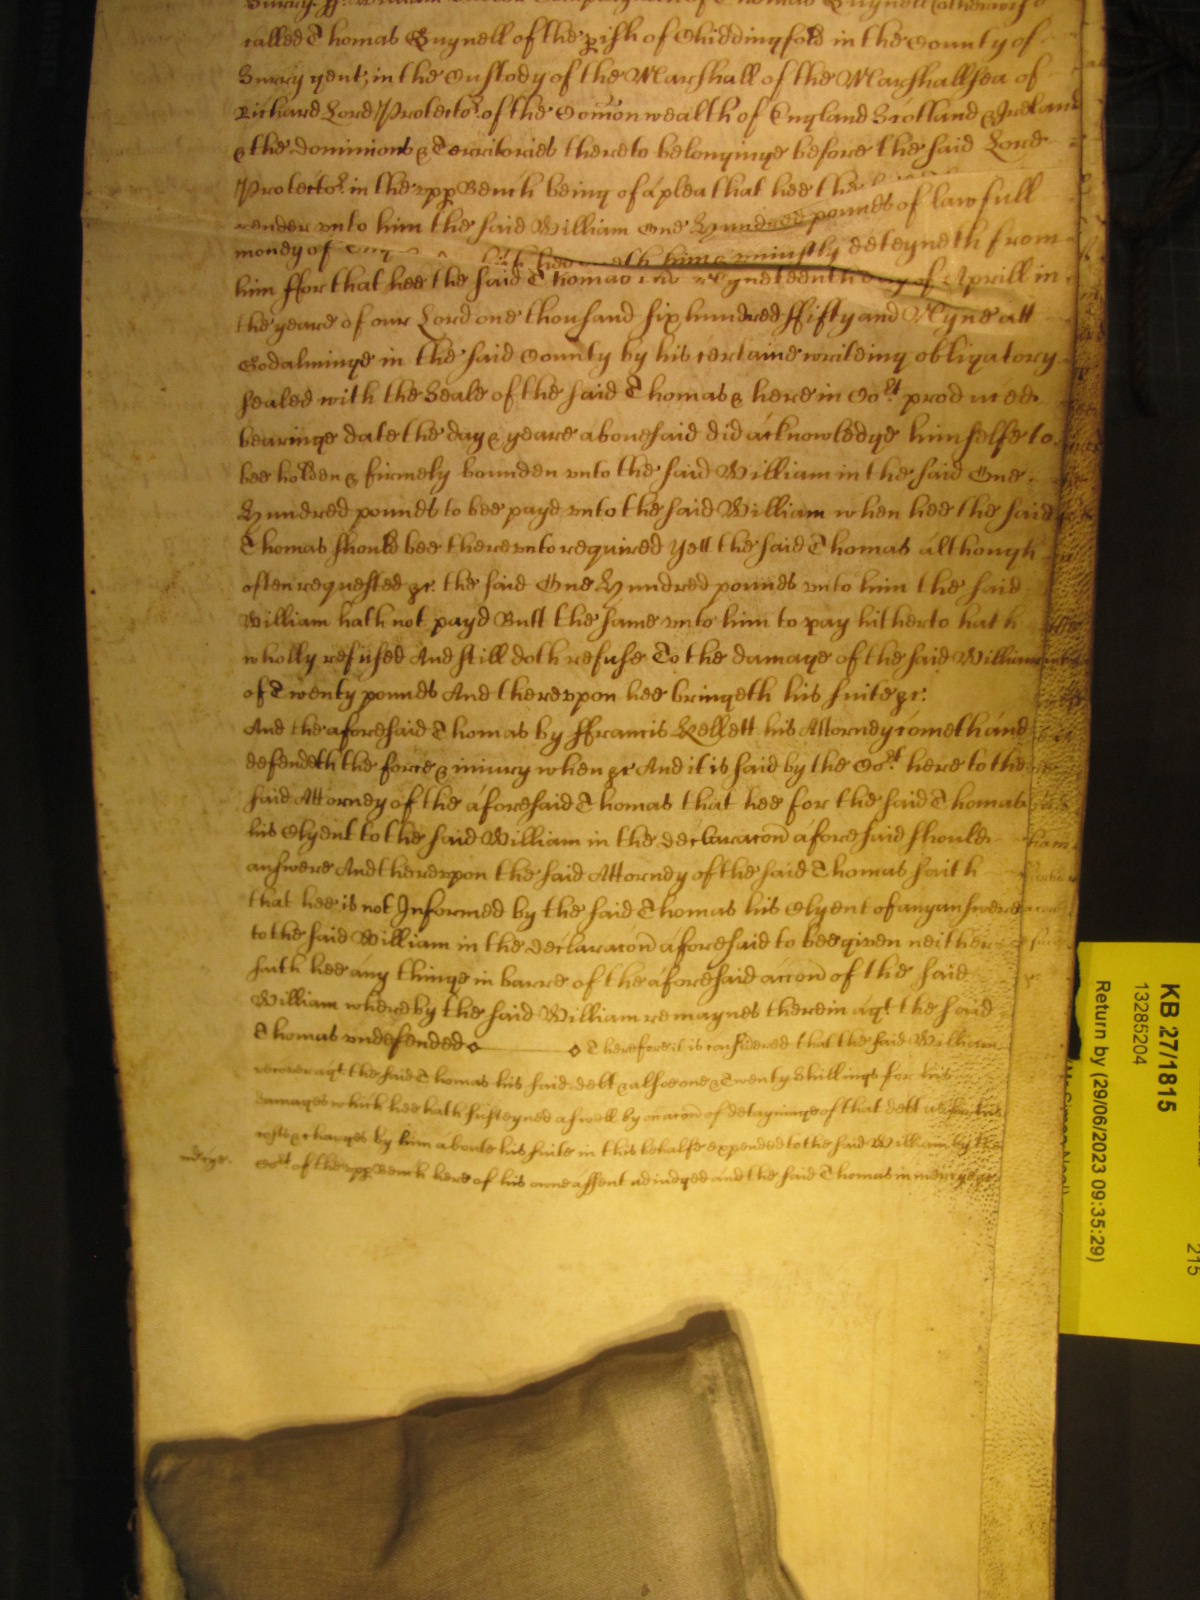 called Thomas Quynell of the pish of Chiddingfold in the County of
Surry gent, in the Custody of the Marshall of the Marshallsea of
Richard Lord Protector of the Comonwealth of England Scotland & Ireland
& the dominions & Territories thereto belonginge before the said Lord
Protector in the upp Bench being of a plea that hee
render unto him the said William One Hundred pounds of lawfull
money of uniustly deteyneth from
him ffor that hee the said Thomas the Nyneteenth day of Aprill in
the yeare of our Lord one thousand six hundred ffifty and Nyne att
Godalminge in the said County by his certaine writeing obligatory
sealed with the Seale of the said Thomas & here in Cort produced
bearinge date the day & yeare abovesaid did acknowledge himselfe to
bee holden & firmely bounden unto the said William in the said One
Hundred pounds to bee payd unto the said William when hee the said
Thomas should bee thereunto required Yett the said Thomas although
often requested &c. the said One Hundred pounds unto him the said
William hath not payd Butt the same unto him to pay hitherto hath
wholly refused And still doth refuse To the damage of the said William
of Twenty pounds And thereupon hee bringeth his suite &c:
And the aforesaid Thomas by ffrancis Kellett his Attorney cometh and
defendeth the force & iniury when &c And it is said by the Cort here to the
said Attorney of the aforesaid Thomas that hee for the said Thomas
his Clyent to the said William in the declaracon aforesaid should
answere And thereupon the said Attorney of the said Thomas saith
that hee is not Informed by the said Thomas his Clyent of any answere
to the said William in the declaracon aforesaid to bee given neither
saith hee any thinge in barre of the aforesaid accon of the said
William whereby the said William remaynes therein agt the said
Thomas undefended Therefore it is considered that the said William
recover agt the said Thomas his said debt & alsoe one & Twenty Shillings for his
damages which hee hath susteyned aswell by occacon of detayninge of that debt as for his
costs & charges by him aboute his suite in this behalfe expended to the said William by the
Cort of the upp Bench here of his owne assent adiudged and the said Thomas in mercy &c.
KB 27/1815
13285204
Return by (29/06/2023 09:35:29)
215